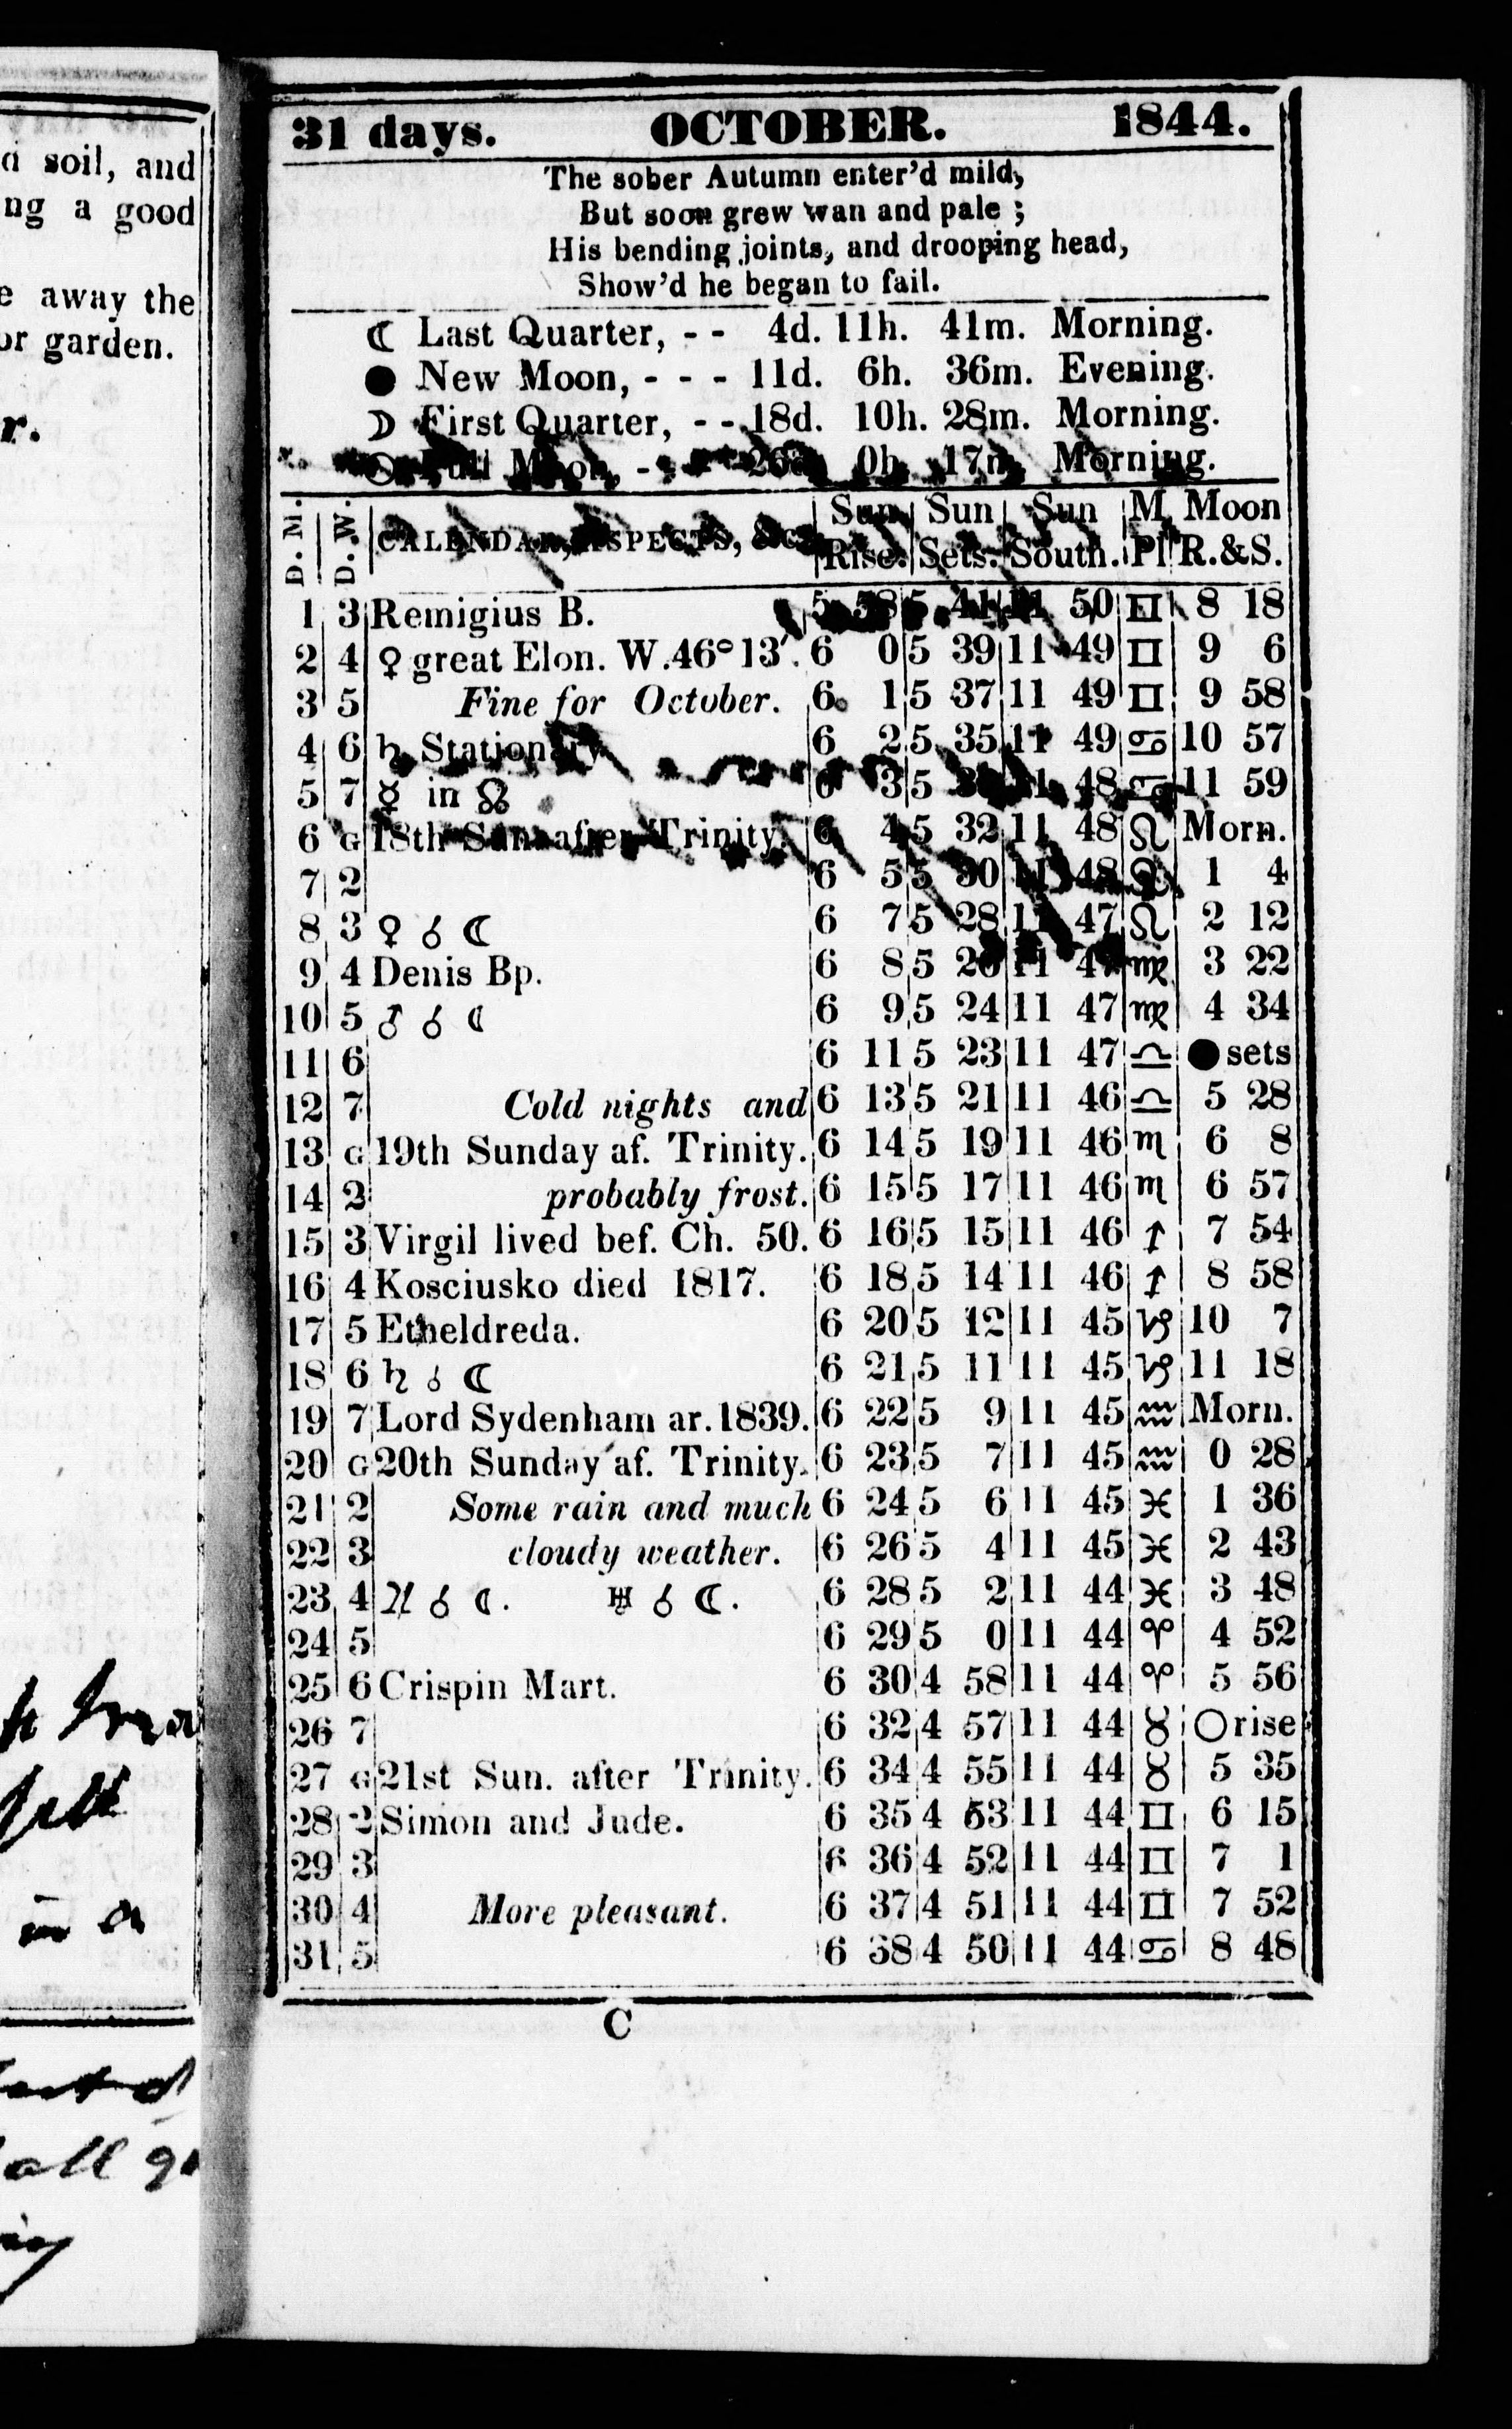 d soil, and
ng a good
e away the
or garden.
r.
in a
all
31 days. OCTOBER. 1844.
The sober Autumn enter'd mild,
But soon grew wan and pale ;
His bending joints, and drooping head,
Show'd he began to fail.
☾ Last Quarter, - - 4d. 11h. 41m. Morning.
● New Moon, - - - 11d. 6h. 36m. Evening.
☽ First Quarter, - - 18d. 10h. 28m. Morning.
○ Full Moon, - - - 26d. 0h. 17m. Morning.
D. M. D. W. CALENDAR, ASPECTS, &c. Sun Rise. Sun Sets. Sun South. M Pl Moon R.&S.
1 3 Remigius B. 5 58 5 41 11 50 ♊ 8 18
2 4 ♀ great Elon. W. 46° 13′. 6 0 5 39 11 49 ♊ 9 6
3 5 Fine for October. 6 1 5 37 11 49 ♊ 9 58
4 6 ♄ Stationary 6 2 5 35 11 49 ♋ 10 57
5 7 ☿ in ☊ 6 3 5 11 48 ♋ 11 59
6 G 18th Sun. after Trinity. 6 4 5 32 11 48 ♌ Morn.
7 2 6 5 5 30 11 48 ♌ 1 4
8 3 ♀ ☌ ☾ 6 7 5 28 11 47 ♌ 2 12
9 4 Denis Bp. 6 8 5 26 11 47 ♍ 3 22
10 5 ♂ ☌ ☾ 6 9 5 24 11 47 ♍ 4 34
11 6 6 11 5 23 11 47 ♎ ● sets
12 7 Cold nights and 6 13 5 21 11 46 ♎ 5 28
13 G 19th Sunday af. Trinity. 6 14 5 19 11 46 ♏ 6 8
14 2 probably frost. 6 15 5 17 11 46 ♏ 6 57
15 3 Virgil lived bef. Ch. 50. 6 16 5 15 11 46 ♐ 7 54
16 4 Kosciusko died 1817. 6 18 5 14 11 46 ♐ 8 58
17 5 Etheldreda. 6 20 5 12 11 45 ♑ 10 7
18 6 ♄ ☌ ☾ 6 21 5 11 11 45 ♑ 11 18
19 7 Lord Sydenham ar. 1839. 6 22 5 9 11 45 ♒ Morn.
20 G 20th Sunday af. Trinity. 6 23 5 7 11 45 ♒ 0 28
21 2 Some rain and much 6 24 5 6 11 45 ♓ 1 36
22 3 cloudy weather. 6 26 5 4 11 45 ♓ 2 43
23 4 ♃ ☌ ☾. ♅ ☌ ☾. 6 28 5 2 11 44 ♓ 3 48
24 5 6 29 5 0 11 44 ♈ 4 52
25 6 Crispin Mart. 6 30 4 58 11 44 ♈ 5 56
26 7 6 32 4 57 11 44 ♉ ○ rise
27 G 21st Sun. after Trinity. 6 34 4 55 11 44 ♉ 5 35
28 2 Simon and Jude. 6 35 4 53 11 44 ♊ 6 15
29 3 6 36 4 52 11 44 ♊ 7 1
30 4 More pleasant. 6 37 4 51 11 44 ♊ 7 52
31 5 6 38 4 50 11 44 ♋ 8 48
C